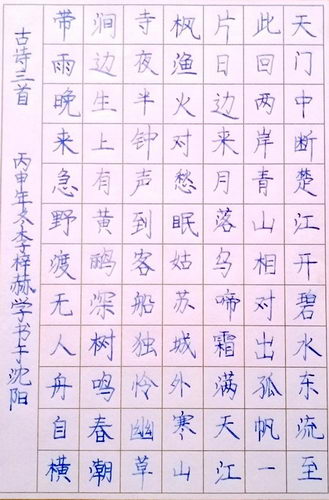 天门中断楚江开碧水东流至
此回两岸青山相对出孤帆一
片日边来月落乌啼霜满天江
枫渔火对愁眠姑苏城外寒山
寺夜半钟声到客船独怜幽草
涧边生上有黄鹂深树鸣春潮
带雨晚来急野渡无人舟自横
古诗三首 丙申年冬李梓赫学书于沈阳